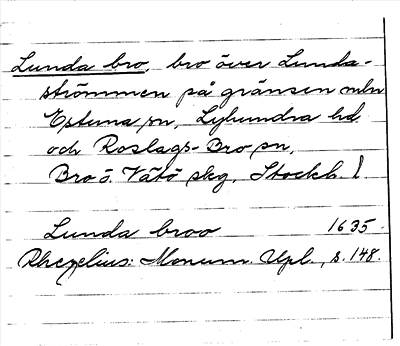 Lunda bro, bro över Lunda-
strömmen på gränsen mln
Estuna sn, Lyhundra hd.
och Roslags-Bro sn,
Bro o. Vätö skg, Stockh. l.
Lunda broo 1635.
Rhezelius: Monum. Upl., s. 148.